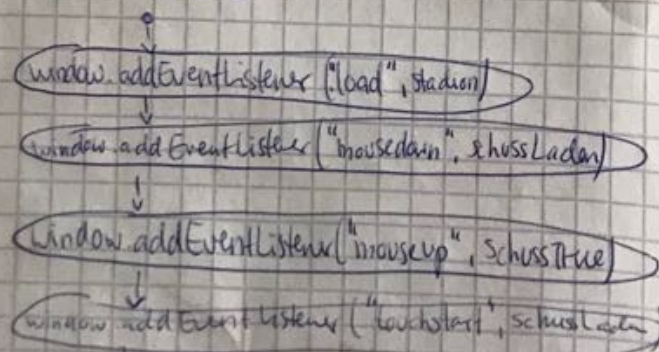 window.addEventListener("load", stadion)
window.addEventListener("mousedown", schussLaden)
window.addEventListener("mouseup", schussTrue)
window.addEventListener("touchstart", schussLaden